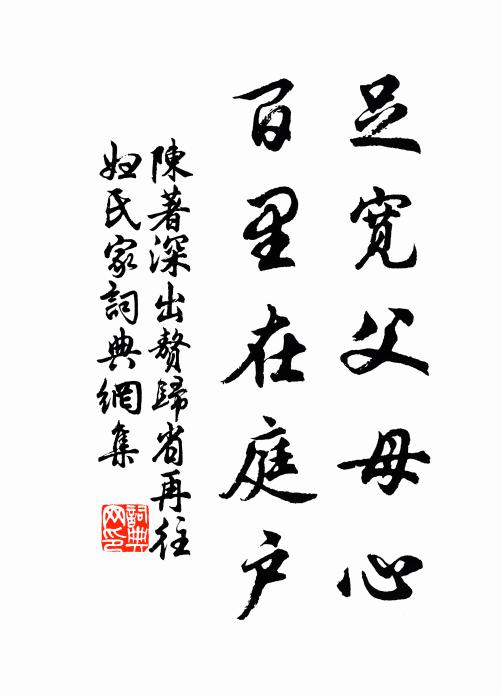 足宽父母心
百里在庭户
陳著深出贅歸省再往
妞氏家詞典網集
詞典网印